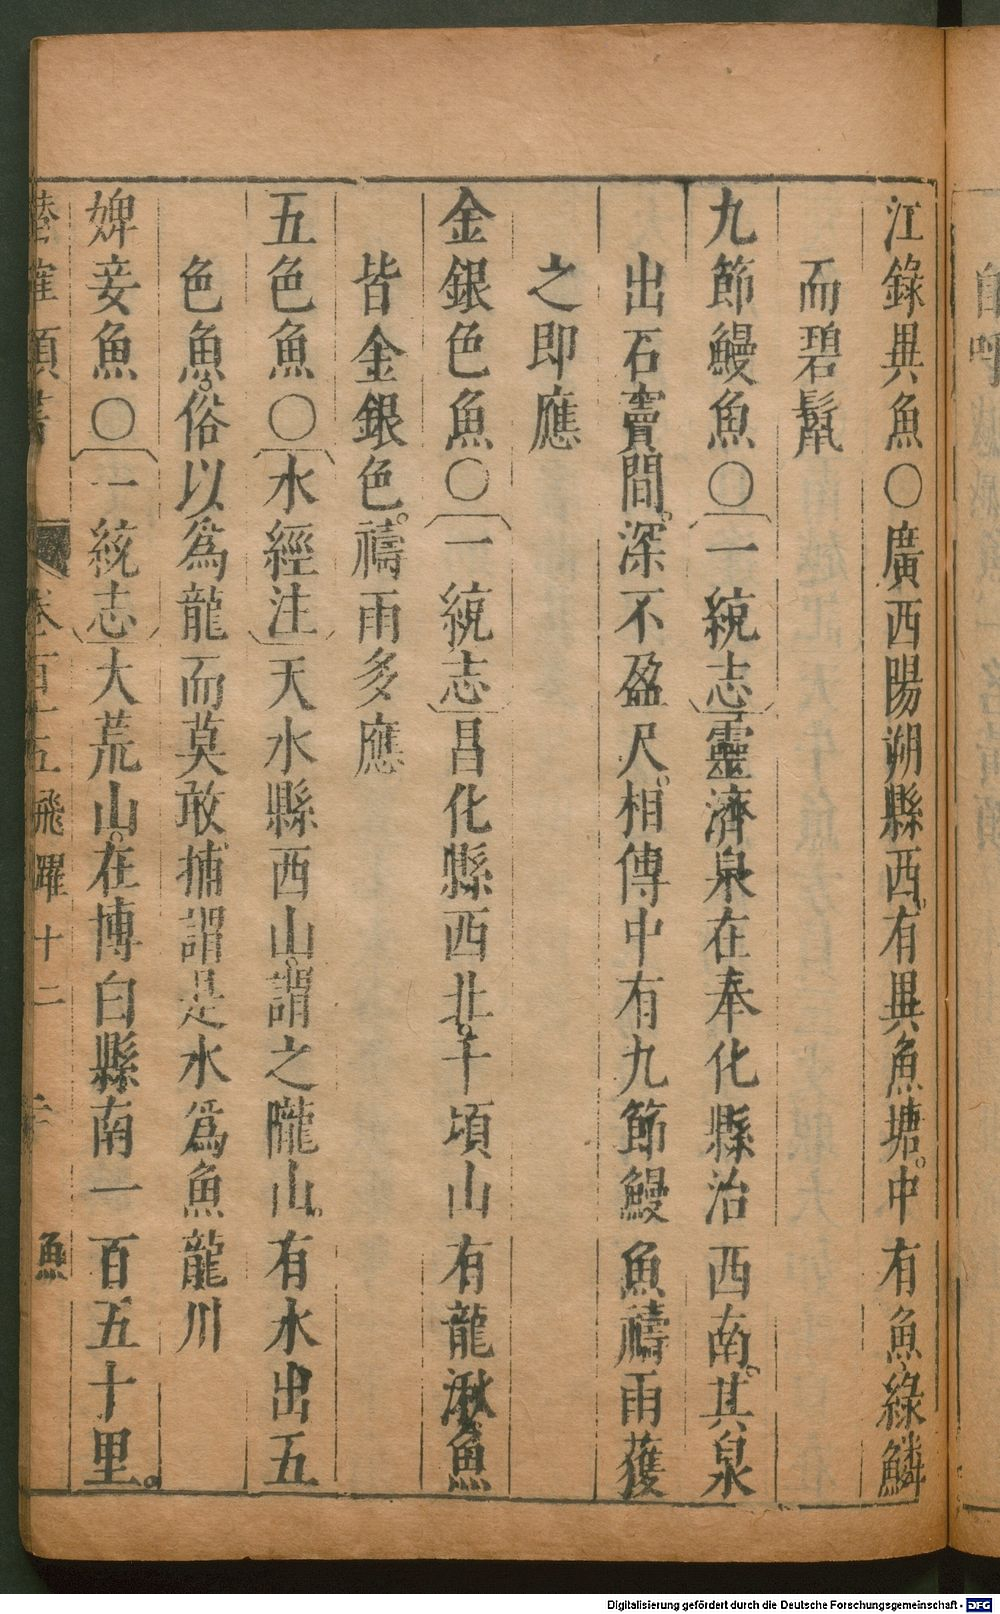 江錄異魚〇廣西陽朔縣西。有異魚塘。中有魚綠鱗
而碧鬣
九節鰻魚〇〔一統志〕靈濟泉在奉化縣治西南。其泉
出石竇間。深不盈尺。相傳中有九節鰻魚禱雨獲
之即應
金銀色魚〇〔一統志〕昌化縣西北。千頃山有龍湫魚
皆金銀色。禱雨多應
五色魚〇〔水經注〕天水縣西山。謂之隴山。有水出五
色魚。俗以爲龍而莫敢捕謂是水爲魚龍川
婢妾魚〇〔一統志〕大荒山。在博白縣南一百五十里。
卷百十五飛躍十二 魚
Digitalisierung gefördert durch die Deutsche Forschungsgemeinschaft - DFG